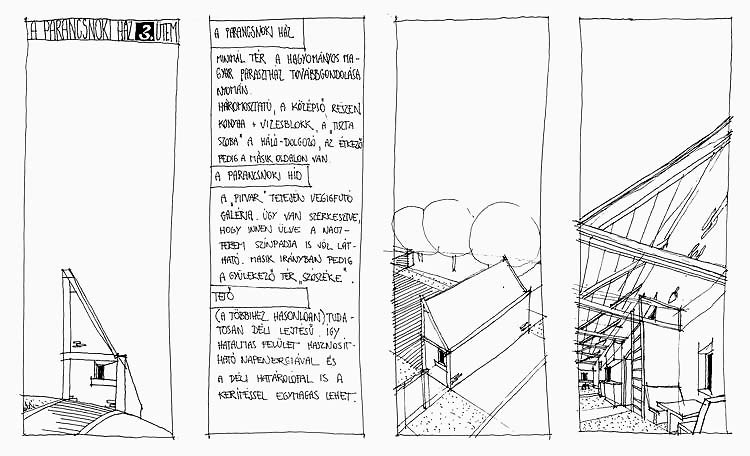 A PARANCSNOKI HÁZ 3. ÜTEM
A PARANCSNOKI HÁZ
MINIMÁL TÉR A HAGYOMÁNYOS MA-
GYAR PARASZTHÁZ TOVÁBBGONDOLÁSA
NYOMÁN.
HÁROMOSZTATÚ, A KÖZÉPSŐ RÉSZEN
KONYHA + VIZESBLOKK, A „TISZTA
SZOBA" A HÁLÓ-DOLGOZÓ, AZ ÉTKEZŐ
PEDIG A MÁSIK OLDALON VAN.
A PARANCSNOKI HÍD
A „PITVAR" TETEJÉN VÉGIGFUTÓ
GALÉRIA. ÚGY VAN SZERKESZTVE,
HOGY INNEN ÜLVE A NAGY-
TEREM SZÍNPADJA IS JÓL LÁT-
HATÓ. MÁSIK IRÁNYBAN PEDIG
A GYÜLEKEZŐ TÉR „SZÓSZÉKE".
TETŐ
(A TÖBBIHEZ HASONLÓAN) TUDA-
TOSAN DÉLI LEJTÉSŰ. ÍGY
HATALMAS FELÜLET HASZNOSÍT-
HATÓ NAPENERGIÁVAL ÉS
A DÉLI HATÁROLÓFAL IS A
KERÍTÉSSEL EGYMAGAS LEHET.